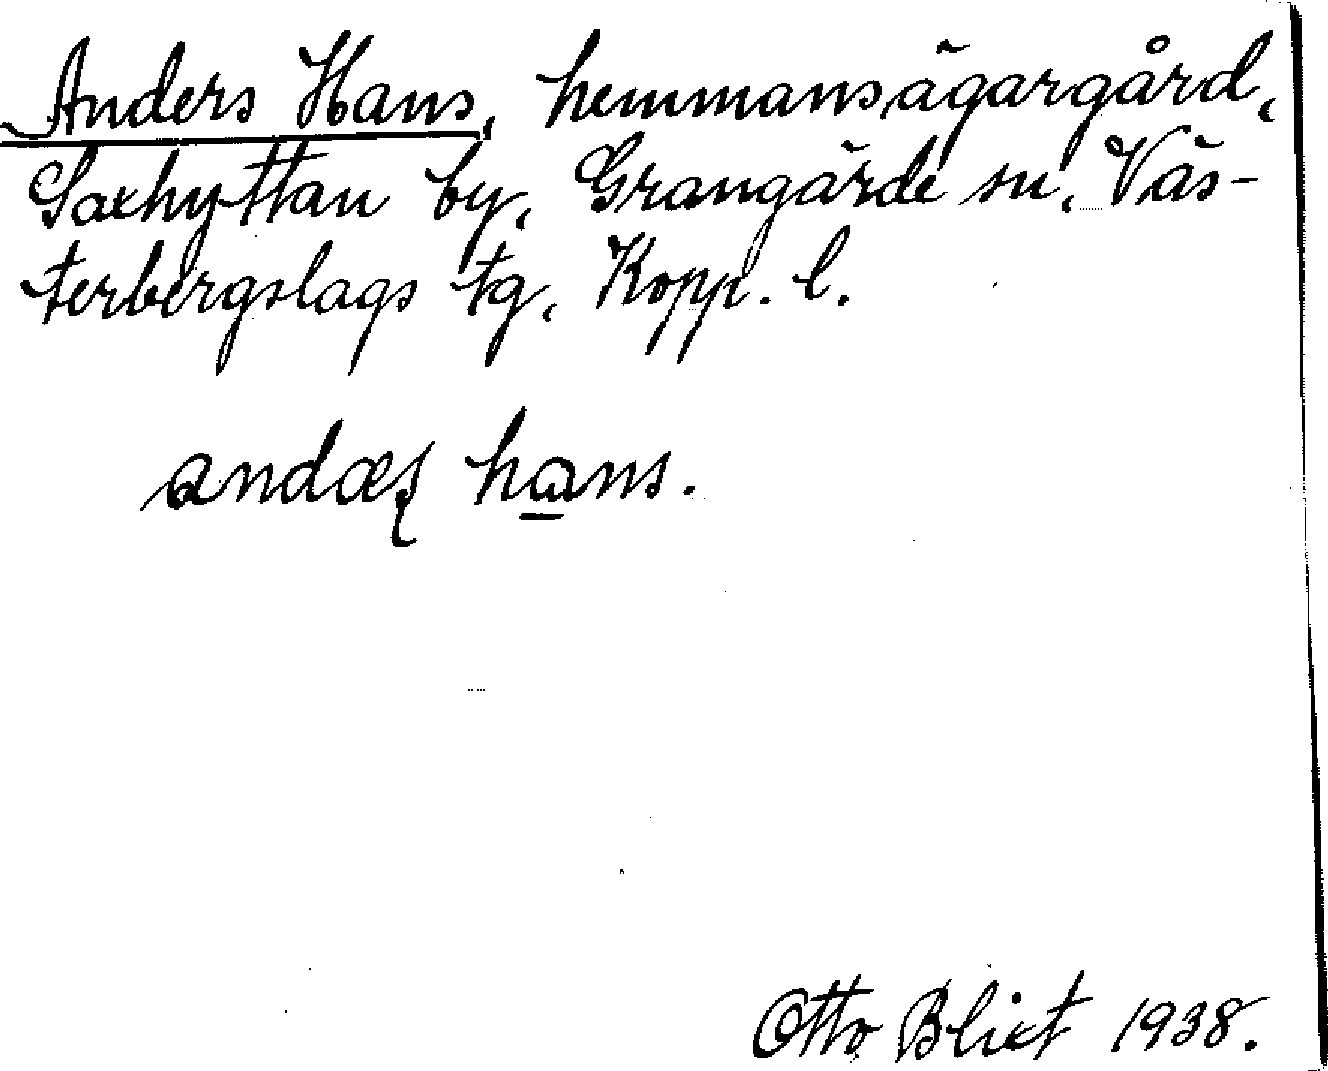 Anders Hans, hemmansägargård,
Saxhyttan by, Grangärde sn, Väs-
terbergslags tg, Kopp. l.
andæʂ hans.
Otto Blixt 1938.